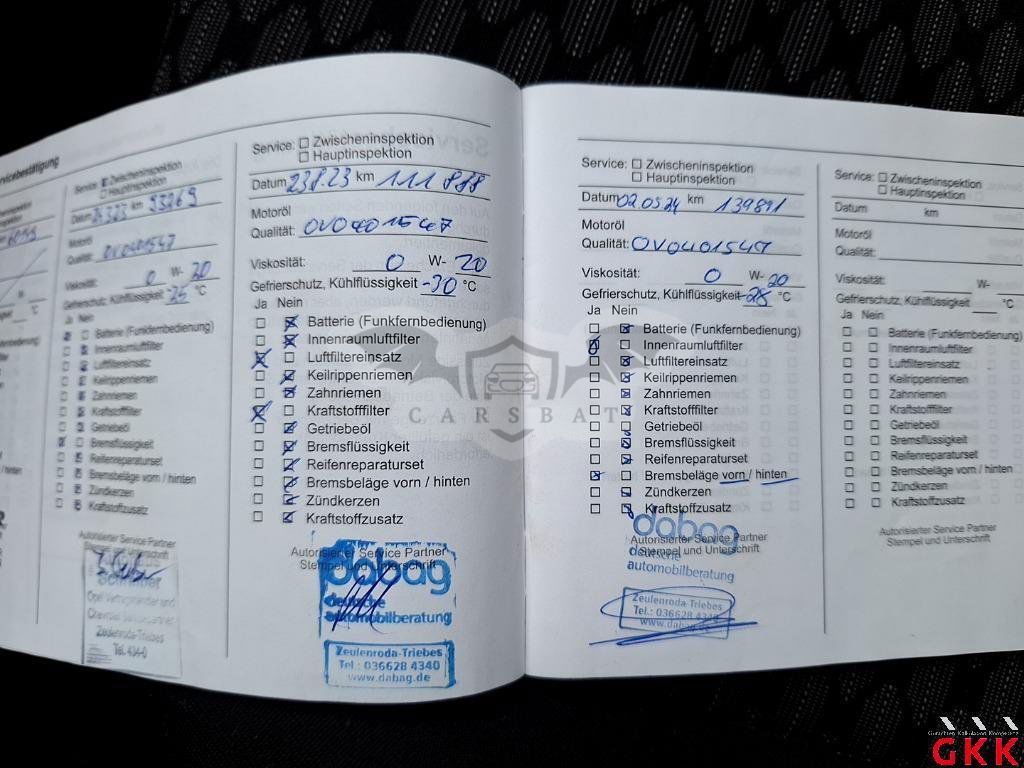 Service: Zwischeninspektion
Hauptinspektion
Datum km
OV0401547
Viskosität: 0 W- 20
Gefrierschutz, Kühlflüssigkeit °C
Ja Nein
Batterie (Funkfernbedienung)
Innenraumluftfilter
Luftfiltereinsatz
Keilrippenriemen
Zahnriemen
Kraftstofffilter
Getriebeöl
Bremsflüssigkeit
Reifenreparaturset
Bremsbeläge vorn / hinten
Zündkerzen
Kraftstoffzusatz
Opel Vertragshändler und
Zeulenroda-Triebes
Service: Zwischeninspektion
Hauptinspektion
Datum 23.8.23 km 111 888
Motoröl
Qualität: OV0401547
Viskosität: 0 W- 20
Gefrierschutz, Kühlflüssigkeit -30 °C
Ja Nein
Batterie (Funkfernbedienung)
Innenraumluftfilter
Luftfiltereinsatz
Keilrippenriemen
Zahnriemen
Kraftstofffilter
Getriebeöl
Bremsflüssigkeit
Reifenreparaturset
Bremsbeläge vorn / hinten
Zündkerzen
Kraftstoffzusatz
Autorisierter Service Partner
Stempel und Unterschrift
dabag
deutsche
automobilberatung
Zeulenroda-Triebes
Tel.: 036628 4340
www.dabag.de
Service: Zwischeninspektion
Hauptinspektion
Datum 02.05.24 km 139891
Motoröl
Qualität: OV0401547
Viskosität: 0 W- 20
Gefrierschutz, Kühlflüssigkeit -28 °C
Ja Nein
Batterie (Funkfernbedienung)
Innenraumluftfilter
Luftfiltereinsatz
Keilrippenriemen
Zahnriemen
Kraftstofffilter
Getriebeöl
Bremsflüssigkeit
Reifenreparaturset
Bremsbeläge vorn / hinten
Zündkerzen
Kraftstoffzusatz
dabag
Autorisierter Service Partner
Stempel und Unterschrift
deutsche
automobilberatung
Zeulenroda-Triebes
Tel.: 036628 4340
www.dabag.de
Service: Zwischeninspektion
Hauptinspektion
Datum km
Motoröl
Qualität:
Viskosität: W-
Gefrierschutz, Kühlflüssigkeit °C
Ja Nein
Batterie (Funkfernbedienung)
Innenraumluftfilter
Luftfiltereinsatz
Keilrippenriemen
Zahnriemen
Kraftstofffilter
Getriebeöl
Bremsflüssigkeit
Reifenreparaturset
Bremsbeläge vorn / hinten
Zündkerzen
Kraftstoffzusatz
Autorisierter Service Partner
Stempel und Unterschrift
CARSBAT
GKK